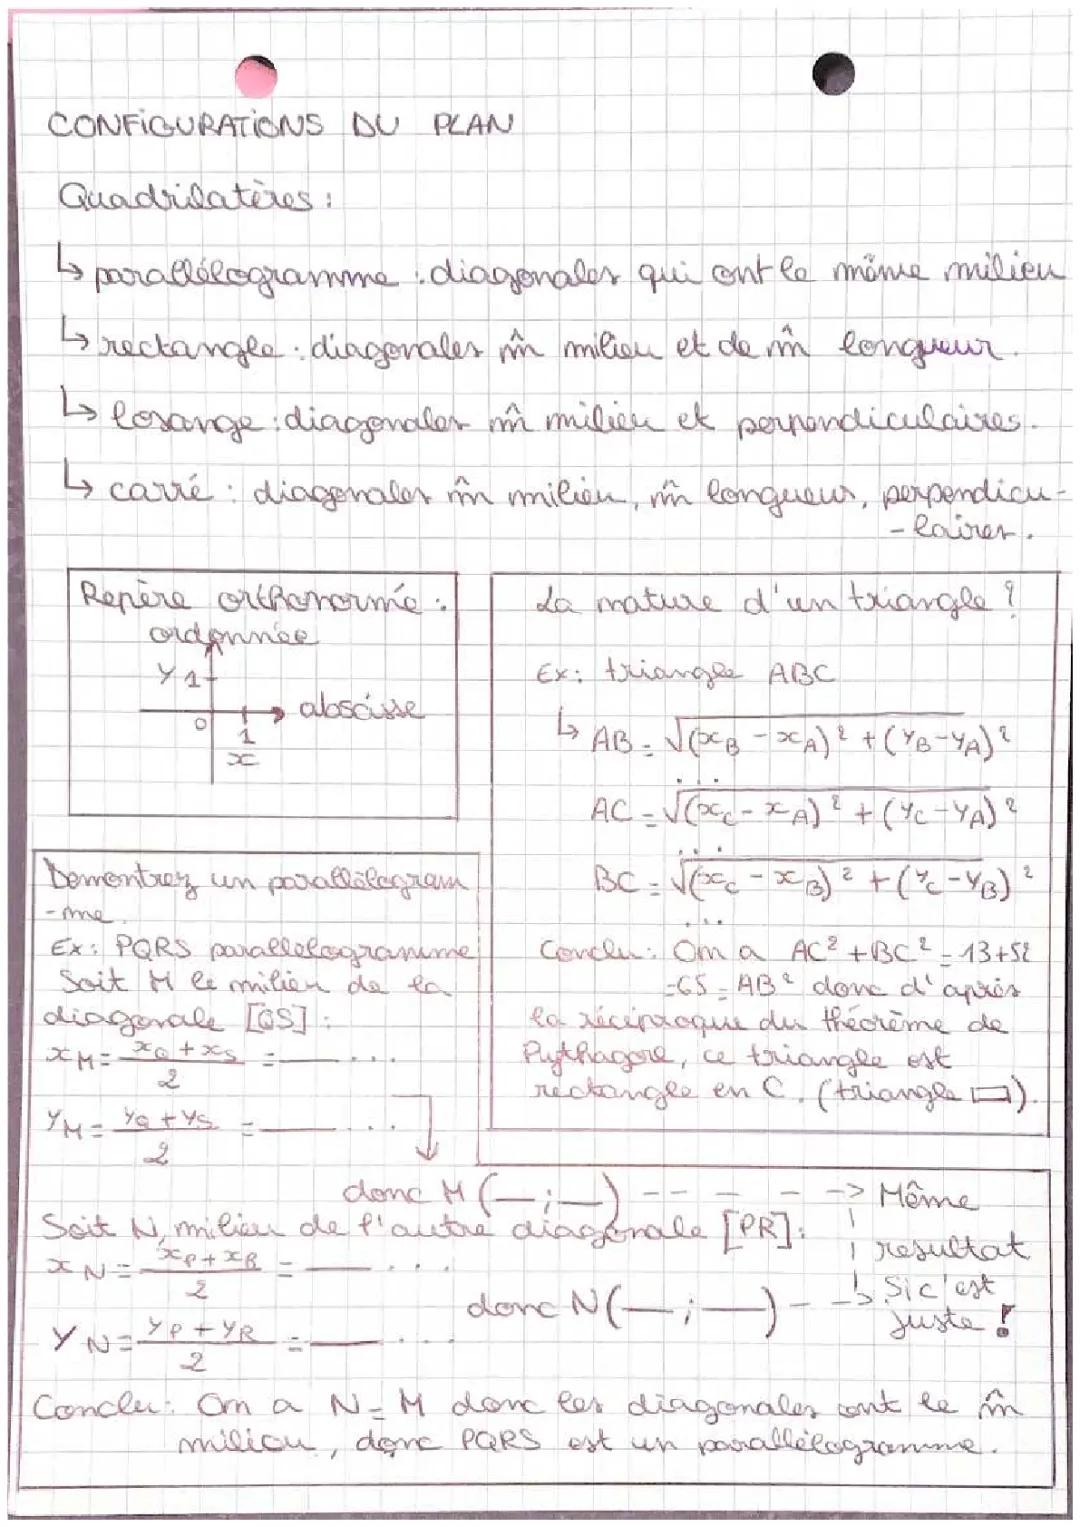 CONFIGURATIONS DU PLAN
Quadrilatères :
↳ parallélogramme : diagonales qui ont le même milieu
↳ rectangle : diagonales m̂ milieu et de m̂ longueur.
↳ losange : diagonales m̂ milieu et perpendiculaires.
↳ carré : diagonales m̂ milieu, m̂ longueur, perpendicu-
-laires.
Repère orthonormé :
ordonnée
Y 1
0 1 → abscisse
x
La nature d'un triangle ?
Ex : triangle ABC
↳ AB = √(xB - xA)² + (yB - yA)²
...
AC = √(xC - xA)² + (yC - yA)²
...
BC = √(xC - xB)² + (yC - yB)²
...
Conclu : On a AC² + BC² = 13+52
=65 = AB² donc d'après
la réciproque du théorème de
Pythagore, ce triangle est
rectangle en C. (triangle ▭).
Demontrez un parallélogram
-me.
Ex : PQRS parallélogramme
Soit M le milieu de la
diagonale [QS] :
xM = xQ + xS / 2 = — ...
yM = yQ + yS / 2 = — ...
donc M (— ; —) - - - - -> Même
resultat
Si c'est
juste !
Soit N, milieu de l'autre diagonale [PR] :
xN = xP + xR / 2 = — ...
donc N (— ; —) - ->
yN = yP + yR / 2 = — ...
Conclu : On a N = M donc les diagonales ont le m̂
milieu, donc PQRS est un parallélogramme.